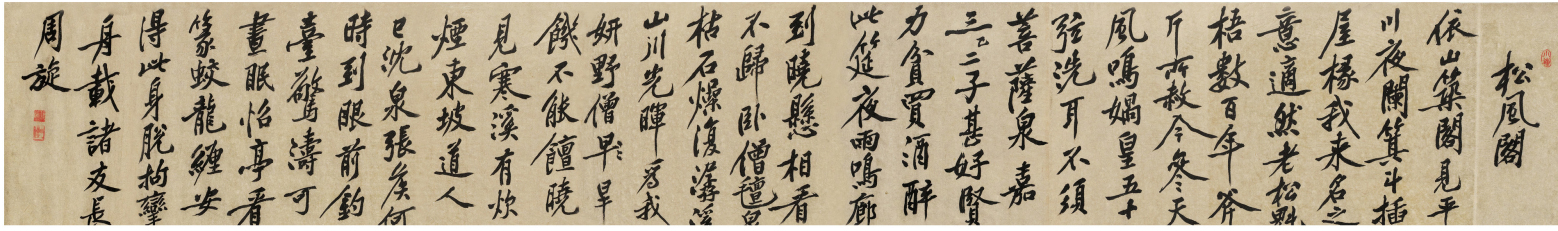 松風閣
依山築閣見平
川夜闌箕斗插
屋椽我来名之
意適然老松魁
梧數百年斧
斤所赦今参天
風鳴媧皇五十
弦洗耳不須
菩薩泉嘉
三二子甚好賢
力貧買酒醉
此筵夜雨鳴廊
到曉懸相看
不歸卧僧氊泉
枯石燥復潺湲
山川光暉為我
妍野僧早旱
饑不能饘曉
見寒溪有炊
煙東坡道人
已沈泉張侯何
時到眼前釣
臺驚濤可
晝眠怡亭看
篆蛟龍纏安
得此身脱拘攣
舟載諸友長
周旋